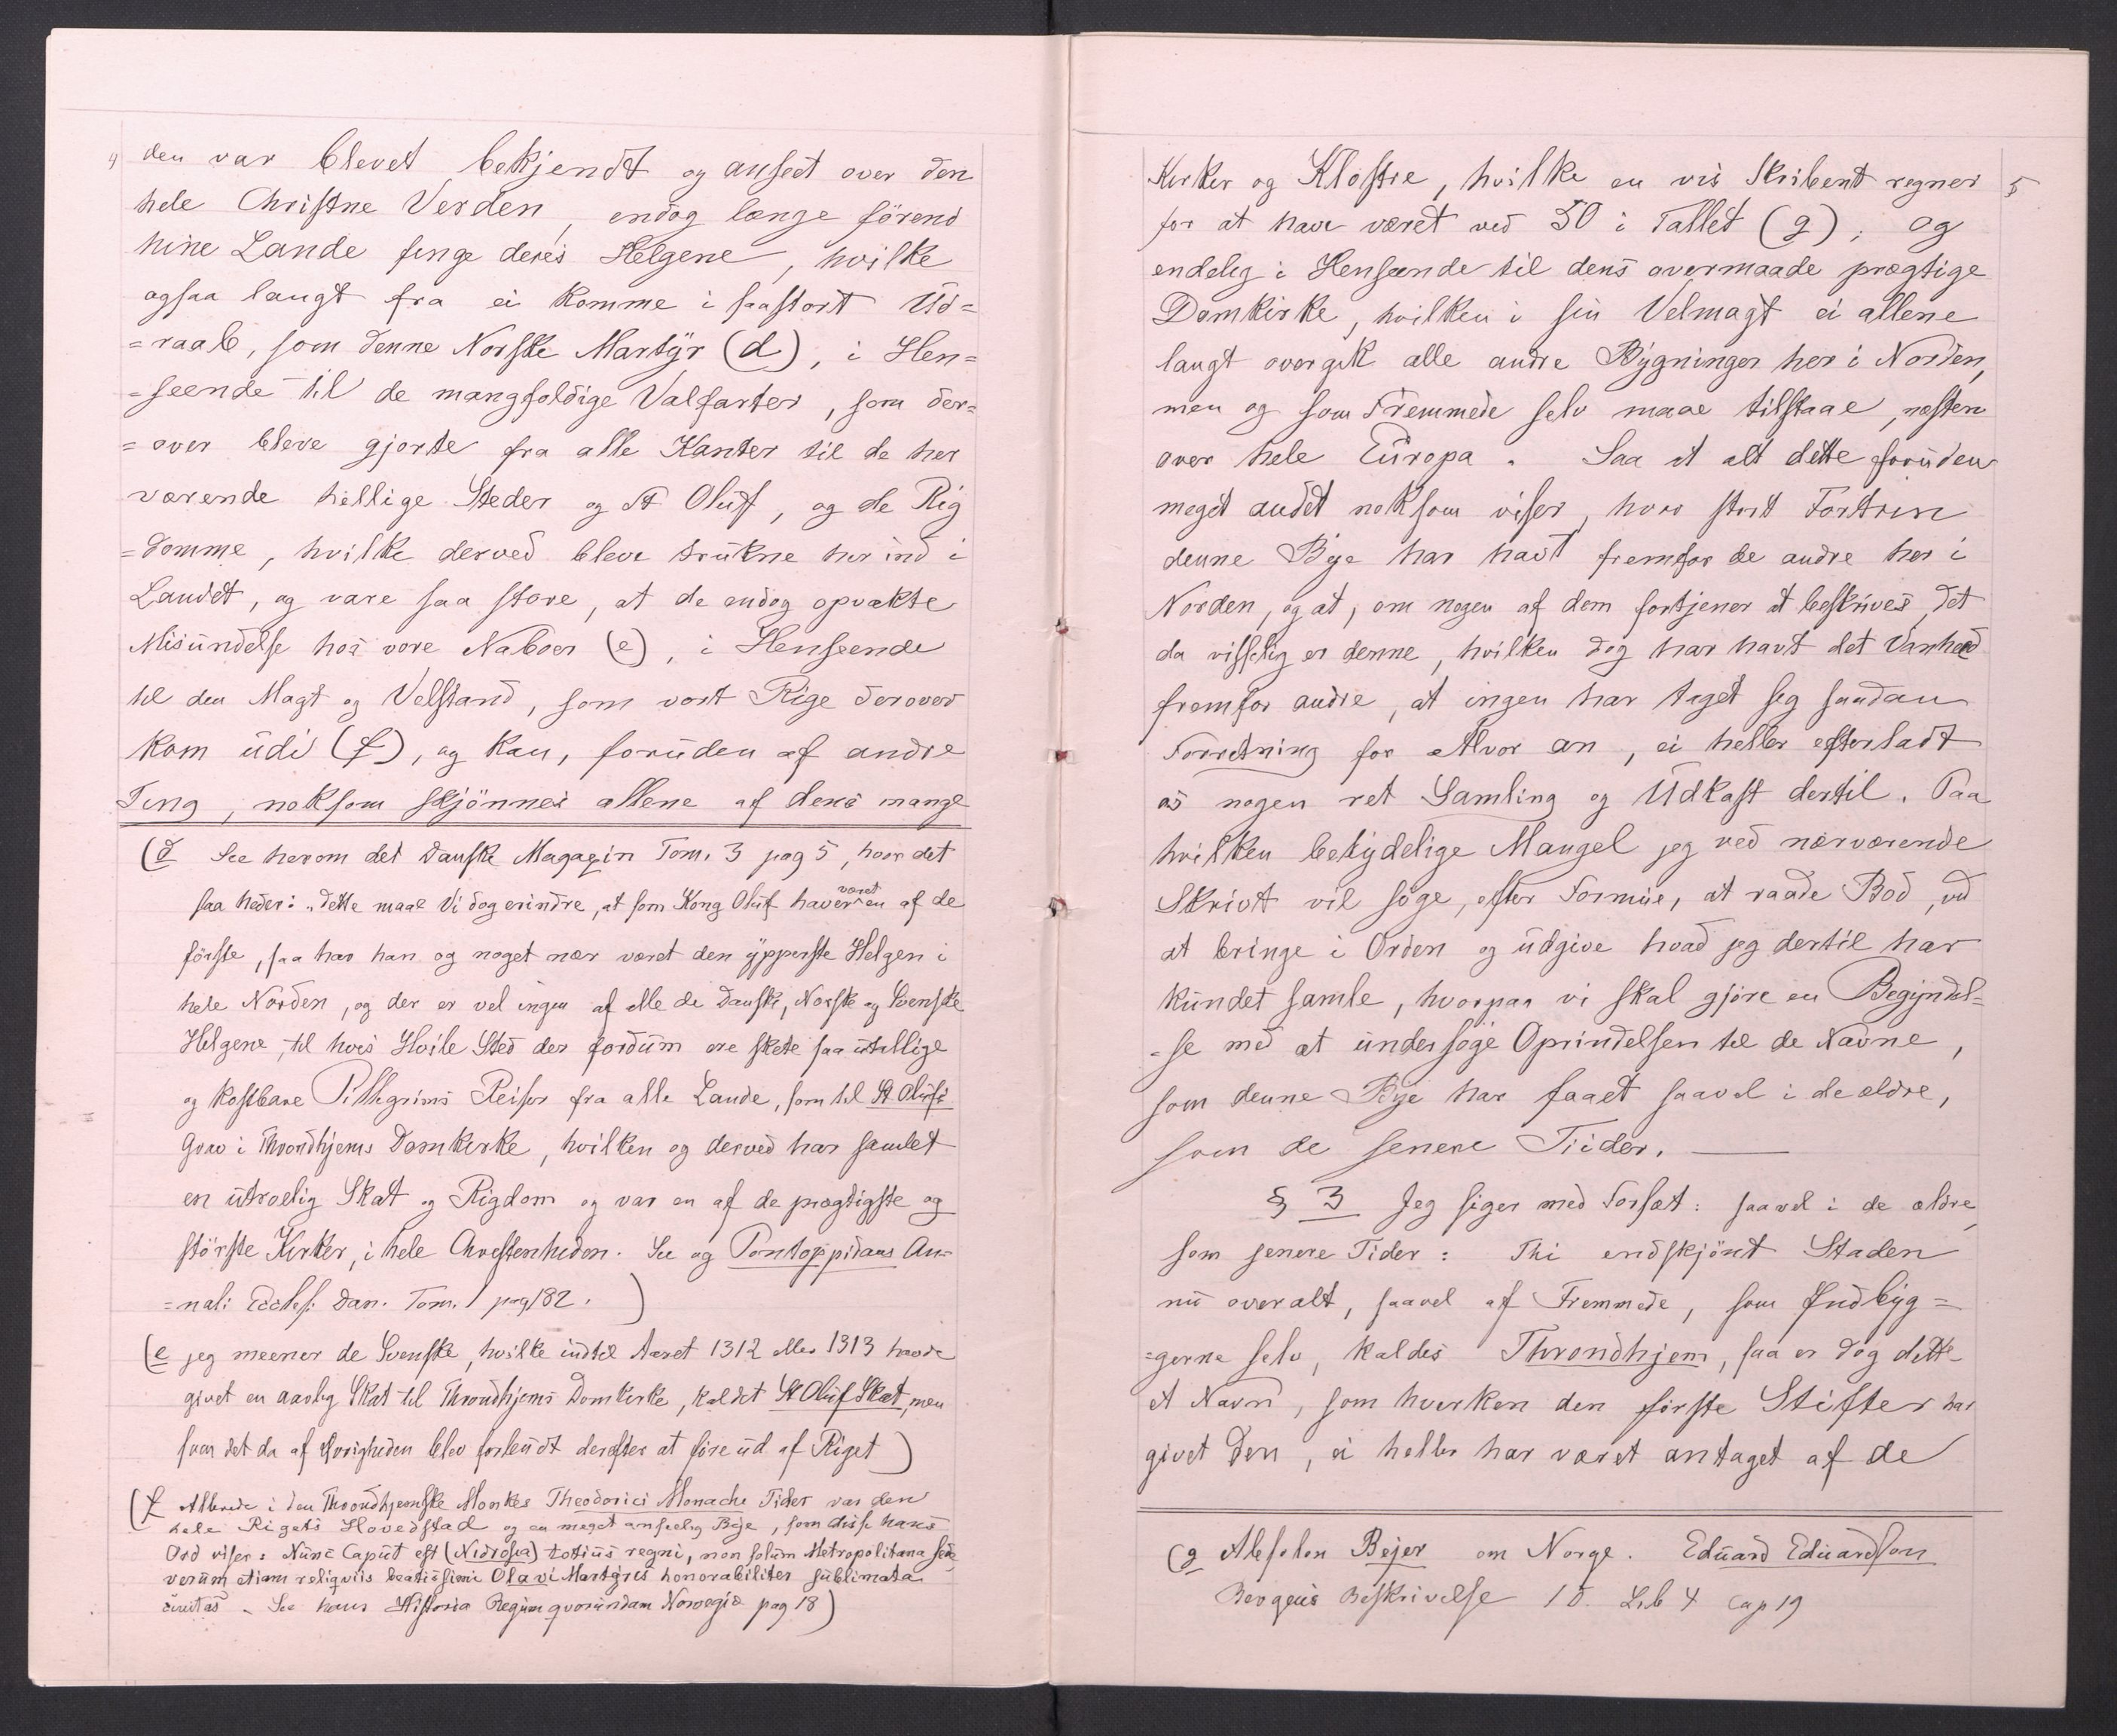 4
den var blevet bekjendt og anseet over den
hele Christne Verden, endog længe förend
hine Lande finge deres Helgene, hvilke
ogsaa langt fra ei komme i saastort Ud=
=raab, som denne Norske Martÿr (d), i Hen=
=seende til de mangfoldige Valfarter, som der=
=over bleve gjorte fra alle Kanter til de her
værende hellige Steder og St Oluf, og de Rig
=domme, hvilke derved bleve trukne her ind i
Landet, og vare saa store, at de endog opvakte
Misundelse hos vore Naboer (e), i Henseende
til den Magt og Velstand, som vort Rige derover
kom udi (f), og kan, foruden af andre
Ting, noksom skjönnes allene af dens mange
(d See herom det Danske Magazin Tom. 3 pag 5, hvor det
saa heder: "Dette maae Vi dog erindre, at som Kong Oluf haver været en af de
förste, saa har han og noget nær været den ÿpperste Helgen i
hele Norden, og der er vel ingen af alle de Danske, Norske og Svenske
Helgene, til hvis Hvile Sted der fordum ere skete saa utallige
og kostbare Pillegrims Reiser fra alle Lande, som til St Olufs
Grav i Throndhjems Domkirke, hvilken og derved har samlet
en utroelig Skat og Rigdom og var en af de prægtigste og
störste Kirker, i hele Christenheden. See og Pontoppidans An=
=nal: Eccles: Dan. Tom. 1 pag 182. )
(e jeg meener de Svenske, hvilke indtil Aaret 1312 eller 1313 havde
givet en aarlig Skat til Throndhjems Domkirke, kaldet St Oluf Skat, men
som det da af Övrigheden blev forbudt derefter at före ud af Riget )
(f Allerede i den Throndhjemske Monkes Theodorici Monachi Tider var den
hele Rigets Hovedstad og en meget anseelig Bÿe, som disse hans
Ord viser: Nunc Caput est (Nidrosia) totius regni, non solum Metropolitana sede
verum etiam reliqviis beatissimi Olavi Martÿris honorabiliter sublimata
civitas. See hans Historia Regum qvorundam Norvegiæ pag 18 )
5
Kirker og Klostre, hvilke en vis Skribent regner
for at have været ved 30 i Tallet (g); og
endelig i Henseende til dens overmaade prægtige
Domkirke, hvilken i sin Velmagt ei allene
langt overgik alle andre Bÿgninger her i Norden,
men og som Fremmede selv maae tilstaae, næsten
over hele Europa. Saa at alt dette foruden
meget andet noksom viser, hvor stort Fortrin
denne Bÿe har havt fremfor de andre her i
Norden, og at, om nogen af dem fortjener at beskrives, det
da visselig er denne, hvilken dog har havt det Vanheld
fremfor andre, at ingen har taget sig saadan
Forretning for Alvor an, ei heller efterladt
os nogen ret Samling og Udkast dertil. Paa
hvilken betÿdelige Mangel jeg ved nærværende
Skrivt vil söge, efter Formue, at raade Bod, ved
at bringe i Orden og udgive hvad jeg dertil har
kundet samle, hvorpaa vi skal gjöre en Begÿndel=
=se med at undersöge Oprindelsen til de Navne,
som denne Bÿe har faaet saavel i de ældre,
som de senere Tiider. —
§ 3 Jeg siger med Forsæt: saavel i de ældre,
som senere Tider: Thi endskjönt Staden
nu overalt, saavel af Fremmede, som Indbÿg=
=gerne selv, kaldes Throndhjem, saa er dog dette
et Navn, som hverken den förste Stifter har
givet Den, ei heller har været antaget af de
(g Absolon Bejer om Norge. Eduard Eduardson
Bergens Beskrivelse 1 D. Lib 4 Cap 19